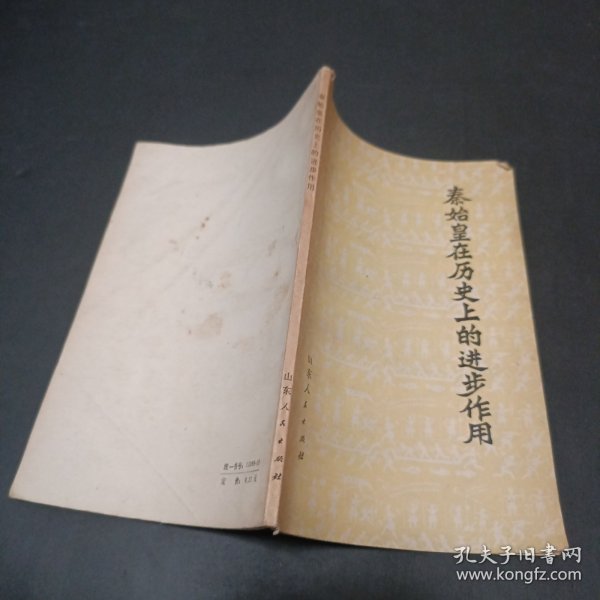 秦始皇在历史上的进步作用
山东人民出版社
秦始皇在历史上的进步作用
山东人民出版社
统一书号：
定价：
孔夫子旧书网
www.kongfz.com